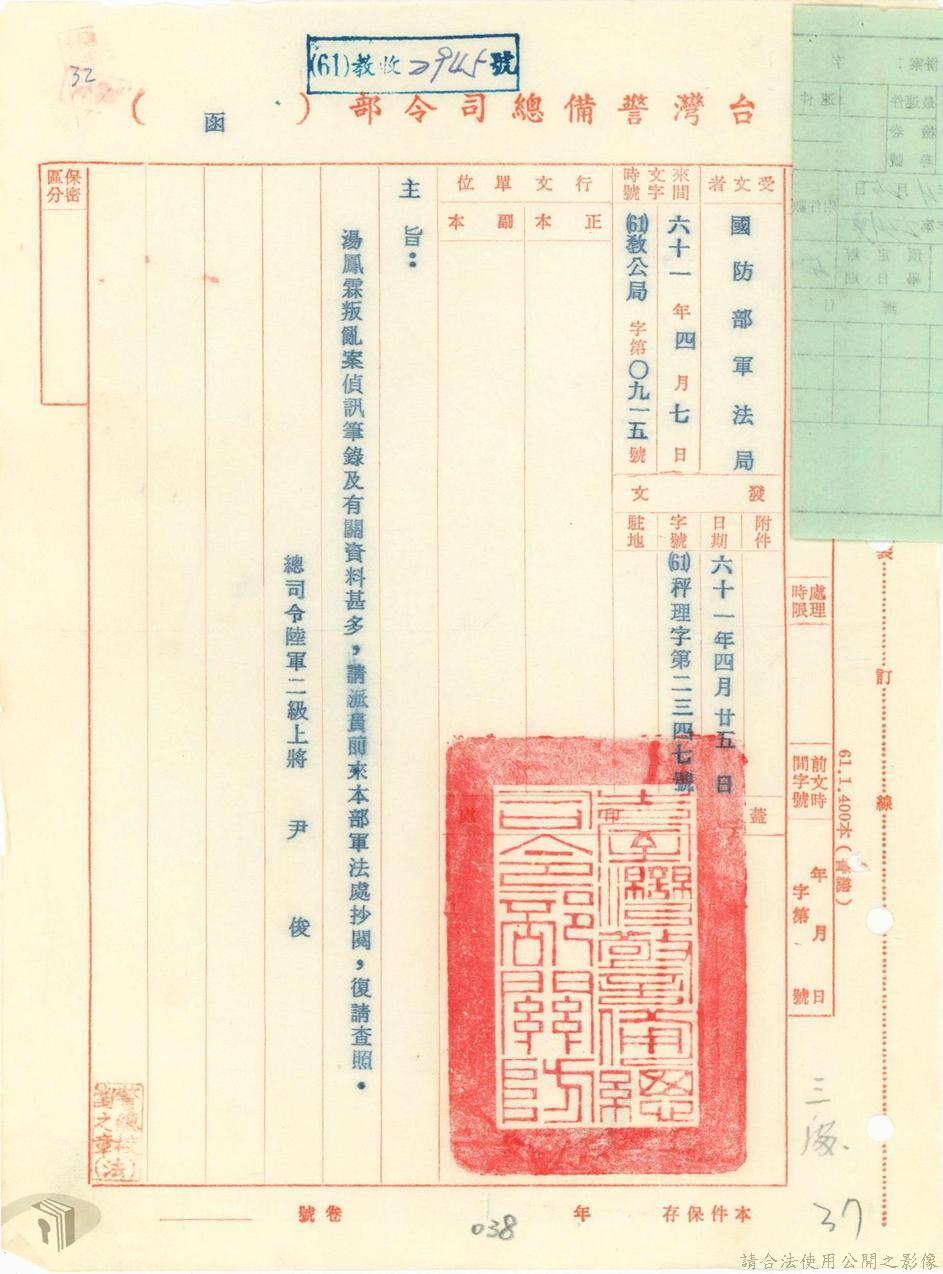 (61)教收2945號
32
台灣警備總司令部(函)
保密區分
受文者 國防部軍法局
來文時間字號 六十一年四月七日
(61)教公局字第〇九一五號
行文單位
正本
副本
發文
附件
日期 六十一年四月廿五日
字號 (61)秤理字第二三四七號
駐地
蓋印處
臺灣警備總司令部關防
主旨：
湯鳳霖叛亂案偵訊筆錄及有關資料甚多，請派員前來本部軍法處抄閱，復請查照。
總司令陸軍二級上將 尹俊
警總校
對之章(法)
處理時限
前文時間字號 年 月 日
字第 號
61.1.400本(警總)
裝訂線
三
37
本件保存 年
038
卷號
請合法使用公開之影像